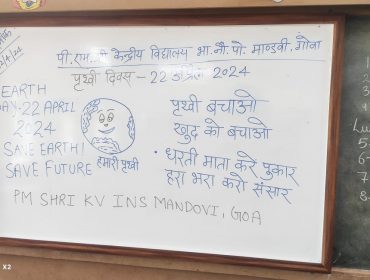 पी.एम. श्री केन्द्रीय विद्यालय भा.नौ.पो. माण्डवी, गोवा
पृथ्वी दिवस - 22 अप्रैल 2024
EARTH
DAY-22 APRIL
2024
SAVE EARTH!
SAVE FUTURE
हमारी पृथ्वी
पृथ्वी बचाओ
खुद को बचाओ
• धरती माता करे पुकार
हरा भरा करो संसार
PM SHRI KV INS MANDOVI, GOA
X2